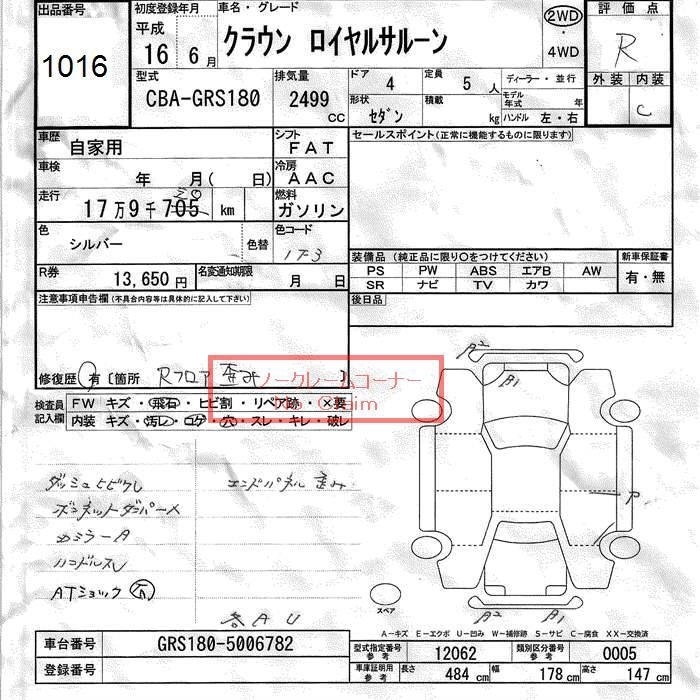 出品番号 初度登録年月 車名・グレード 2WD 評価点
1016 平成 16 6月 クラウン ロイヤルサルーン ・ 4WD R
型式 排気量 ドア 4 定員 5 人 ディーラー・並行 外装 内装
CBA-GRS180 2499 CC 形状 セダン 積載 kg モデル年式 年 ハンドル 左・右 C
車歴 自家用 シフト FAT セールスポイント(正常に機能するものに限ります)
車検 年 月( 日) 冷房 AAC
走行 17万9千705 km 燃料 ガソリン
色 シルバー 色替 色コード 1F3
装備品(純正品に限り○をつけてください) 新車保証書
PS PW ABS エアB AW 有・無
SR ナビ TV カワ
R券 13,650円 名変通知期限 月 日 後日品
注意事項申告欄(不具合内容等は具体的に記入して下さい)
修復歴 有 [箇所 Rフロア 歪み ]
ノークレームコーナー
No Claim
検査員記入欄 FW キズ・飛石・ヒビ割・リペア跡・×要
内装 キズ・汚レ・コゲ・穴・スレ・キレ・破レ
A2
B1
ダッシュヒビワレ エンドパネル歪み
ボンネットダンパー×
ルミラーA
ハンドルスレ
ATショック 有
P
スペア
各AU
A2 B1
A-キズ E-エクボ U-凹み W-補修跡 S-サビ C-腐食 XX-交換済
車台番号 GRS180-5006782 型式指定番号 参考 12062 類別区分番号 参考 0005
登録番号 車庫証明用 参考 長さ 484 cm 幅 178 cm 高さ 147 cm